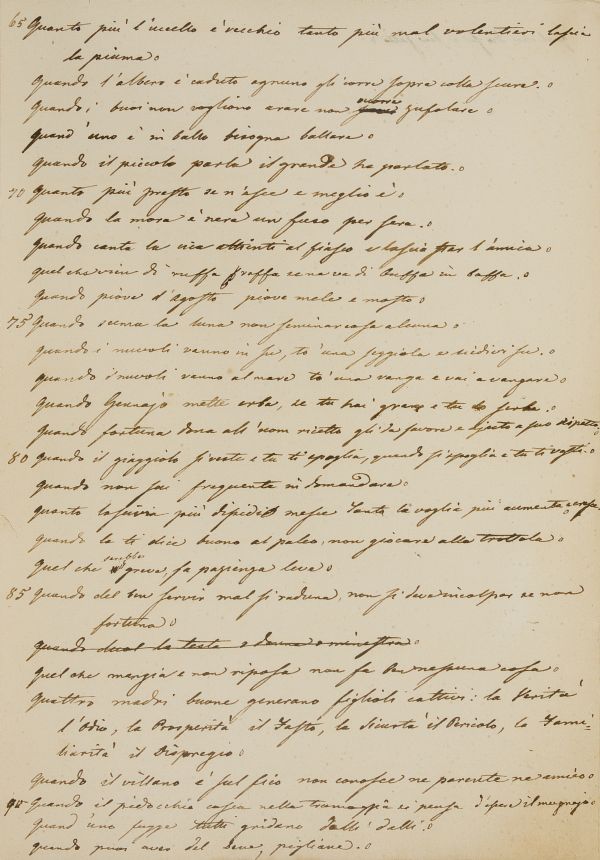 65 Quanto più l'uccello è vecchio tanto più mal volentieri lascia
la piuma.
Quando l'albero è caduto ognuno gli corre sopra colla scure.
Quando i buoi non vogliono arare non vuorre zufolare
Quand'uno è in ballo bisogna ballare
Quando il piccolo parla il grande ha parlato.
70 Quanto più presto se n'esce e meglio è
Quando la mora è nera un fuso per sera.
Quando canta la attienti al fiasco e lascia star l'amica
Quel che vien di ruffa raffa se na va di buffa in baffa.
Quando piove d'Agosto piove mele e mosto
75 Quando scema la luna non seminar cosa alcuna
Quando i nuvoli vanno in su, to' una seggiola e siedivi su.
Quando i nuvoli vanno al mare to' una vanga e vai a vangare
Quando Gennajo mette erba, se tu hai grano e tu lo serba.
Quando fortuna dona all'uom ricetto gli dà favore e a suo dispetto
80 Quando il giaggiolo si veste e tu ti spoglia, quando si spoglia e tu ti vesti.
Quando non sai frequenta in domandare
Quanto lascivia più mesce tanto la voglia più aumenta e cresce
Quando la ti dice buono al paleo, non giocare alla trottola
Quel che sarebbe greve, fa pazienza leve
85 Quando del ben servir mal si raduna, non si deve incolpar se non
fortuna
quando duol la testa o minestra
Quel che mangia e non riposa non fa nessuna cosa
Quattro madri buone generano figlioli cattivi: la Verità
l'Odio, la Prosperità il Fasto, la Sicurtà il Pericolo, la Fami-
liarità il Dispregio
Quando il villano è sul fico non conosce ne parente ne amico
90 Quando il pidocchio casca nella tramoggia ei pensa d'essere il mugnajo
Quand'uno fugge tutti gridano dalli dalli.
Quando puoi aver del Bene, pigliane.